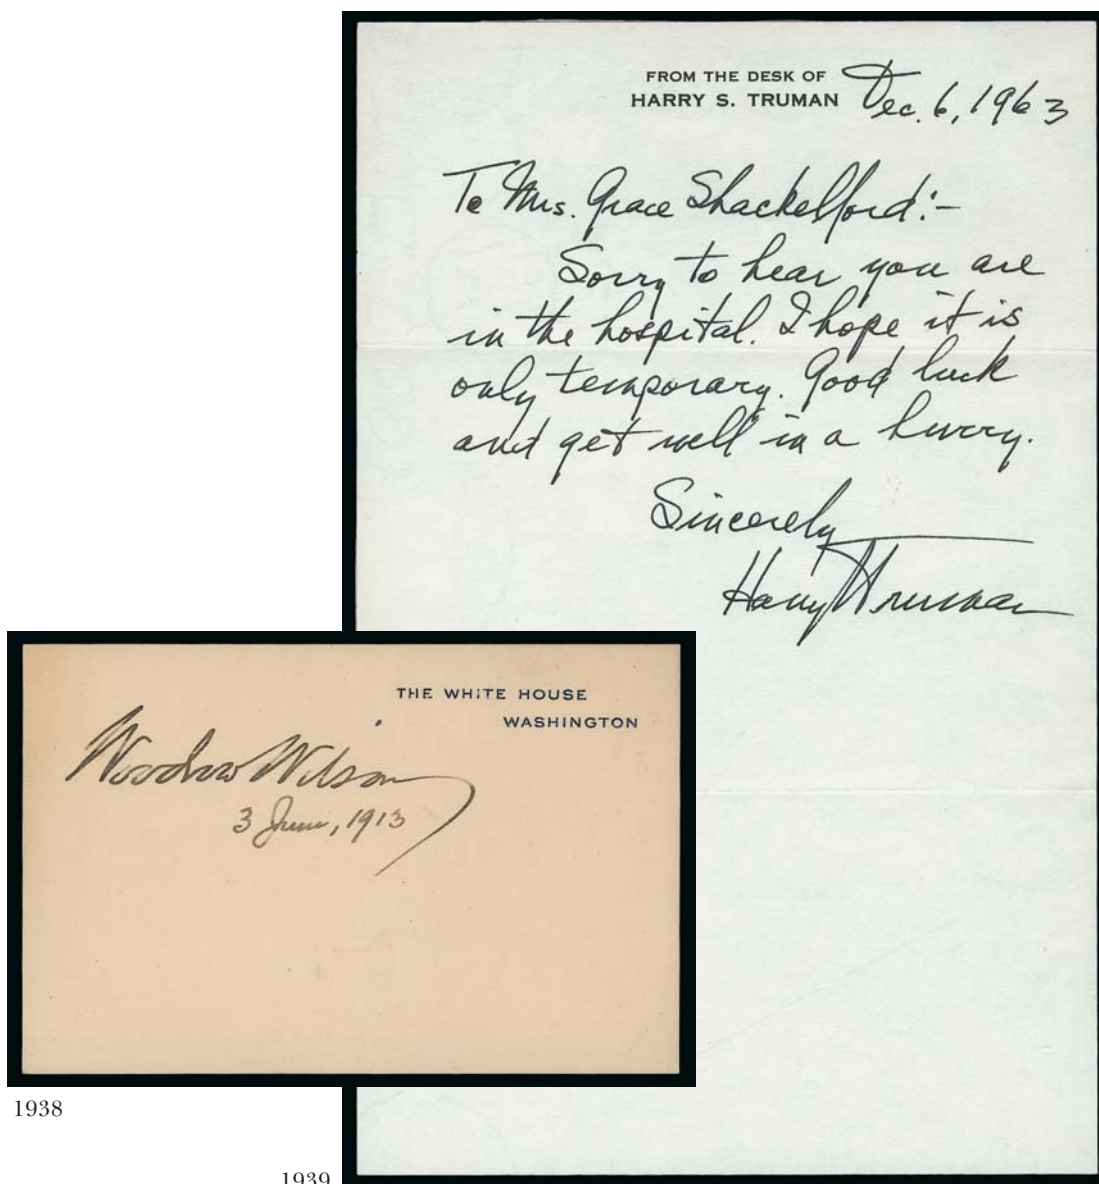 FROM THE DESK OF
HARRY S. TRUMAN
Dec. 6, 1963
To Mrs. Grace Shackelford:-
Sorry to hear you are
in the hospital. I hope it is
only temporary. Good luck
and get well in a hurry.
Sincerely
Harry Truman
THE WHITE HOUSE
WASHINGTON
Woodrow Wilson
3 June, 1913
1938
1939